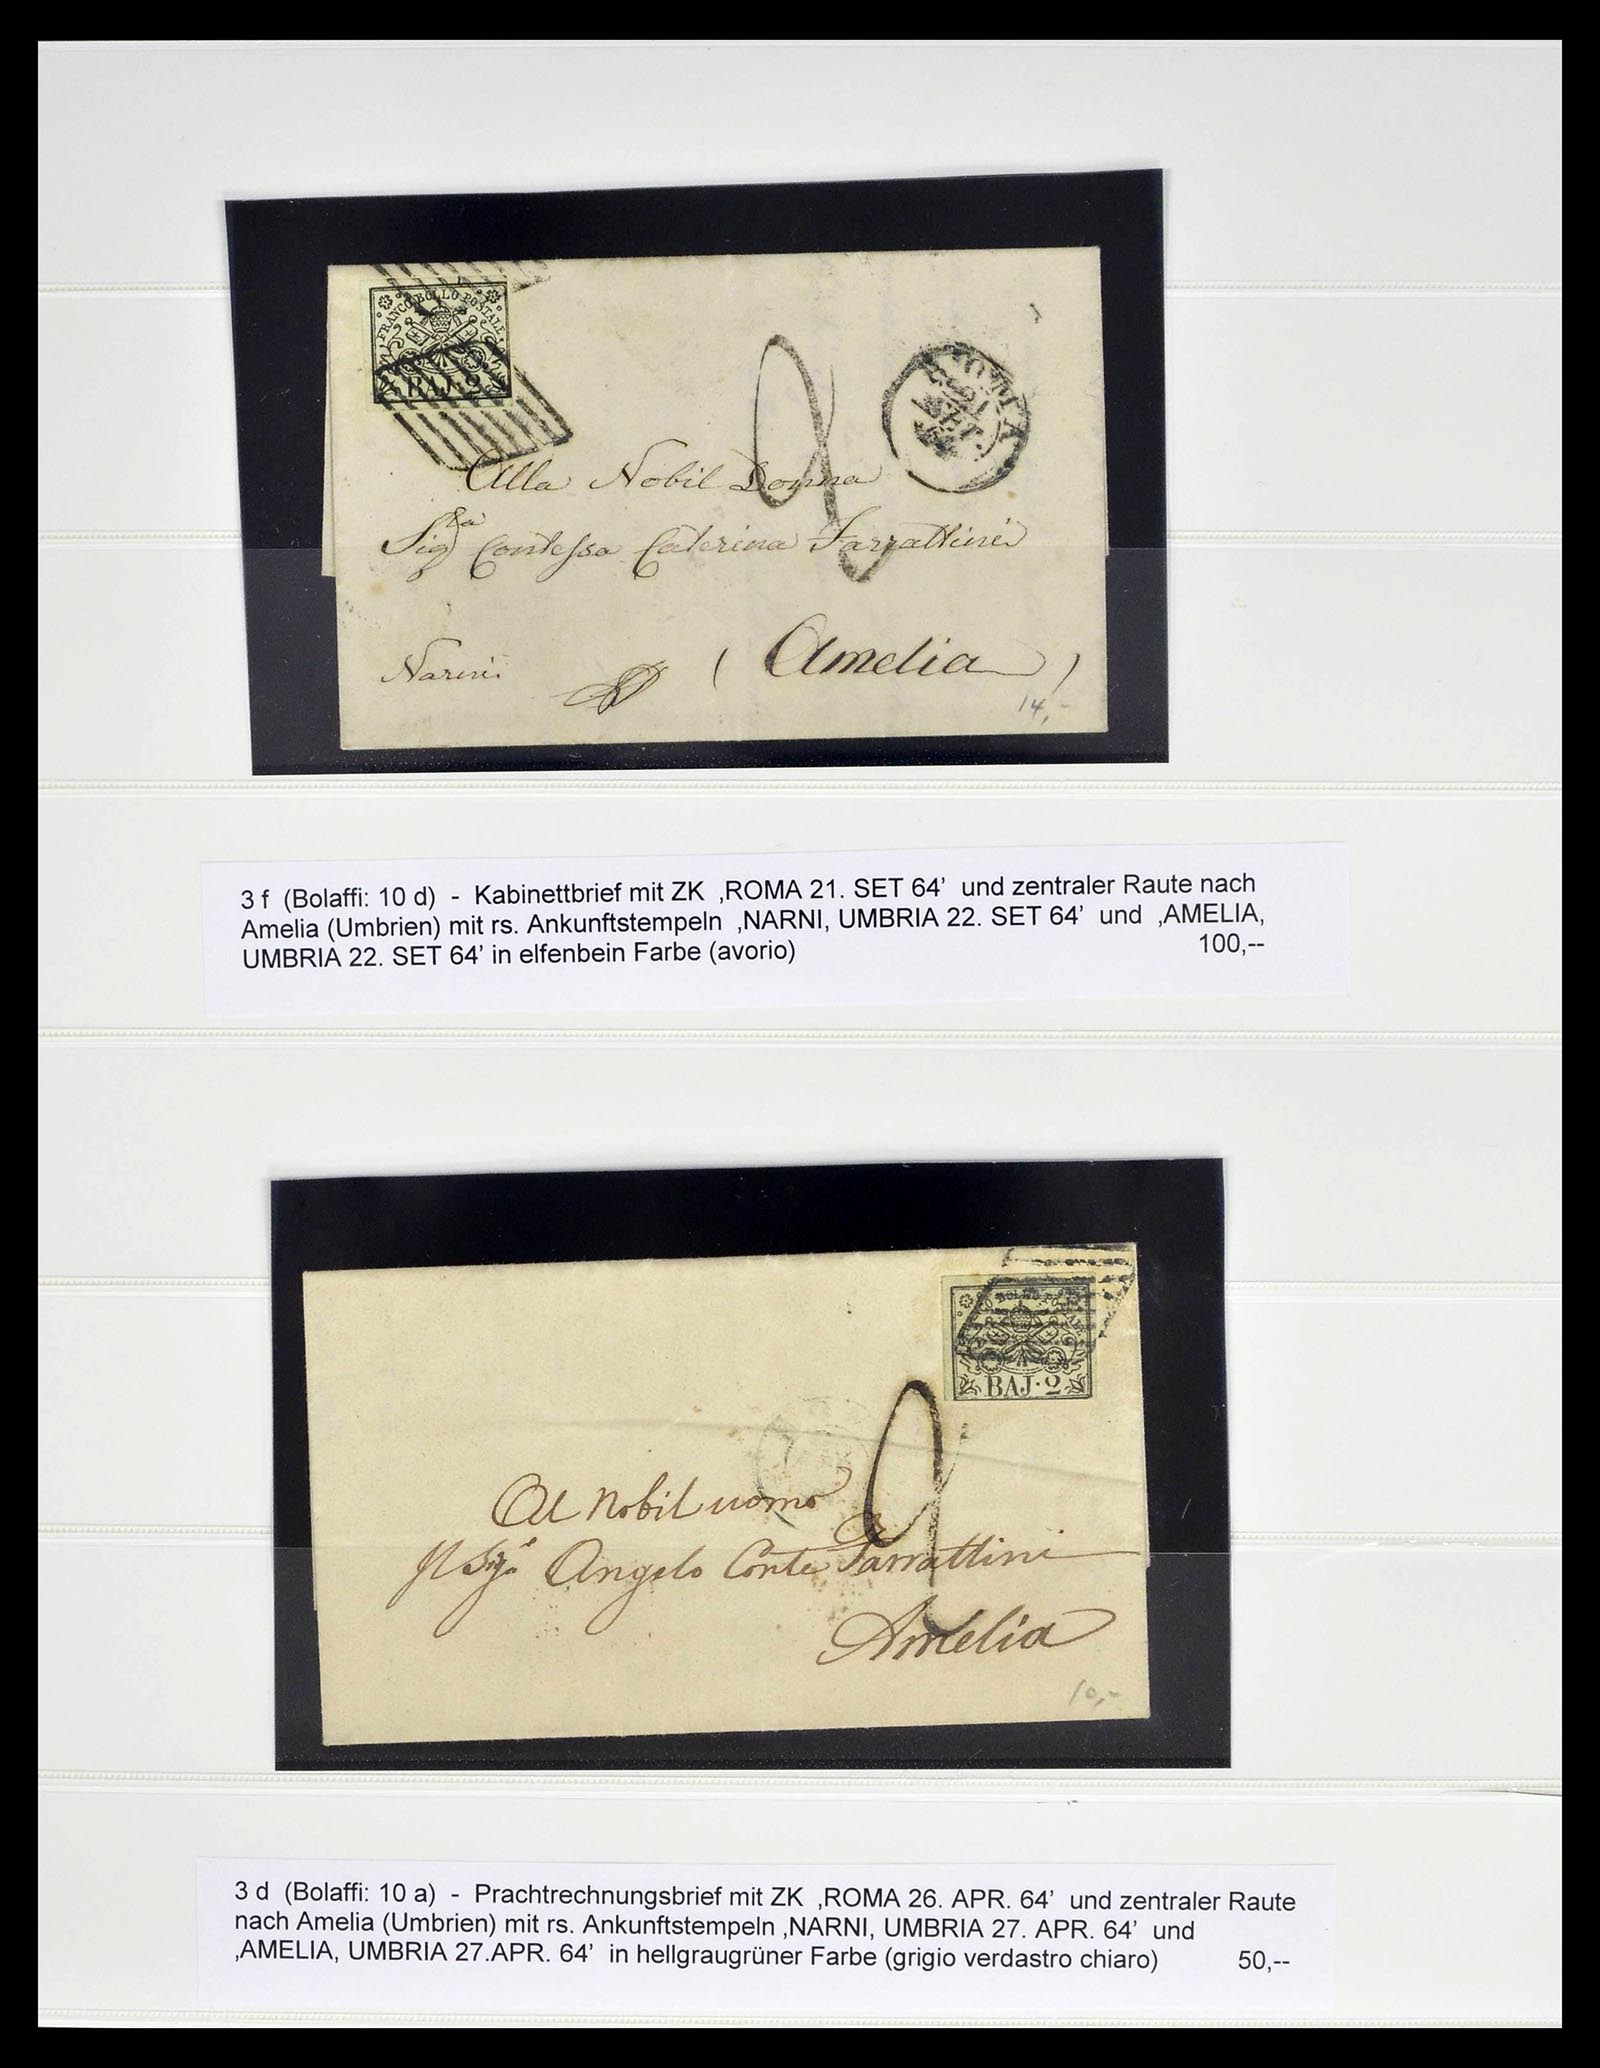 FRANCO BOLLO POSTALE
BAJ·2
2
ROMA
21
SET
Alla Nobil Donna
Sig.ra Contessa Caterina Farrattini
Narni
( Amelia )
14,-
3 f (Bolaffi: 10 d) - Kabinettbrief mit ZK ‚ROMA 21. SET 64’ und zentraler Raute nach
Amelia (Umbrien) mit rs. Ankunftstempeln ‚NARNI, UMBRIA 22. SET 64’ und ‚AMELIA,
UMBRIA 22. SET 64’ in elfenbein Farbe (avorio) 100,--
BOLLO
BAJ·2
2
Al Nobil uomo
Il Sig.r Angelo Conte Farrattini
Amelia
10,-
3 d (Bolaffi: 10 a) - Prachtrechnungsbrief mit ZK ‚ROMA 26. APR. 64’ und zentraler Raute
nach Amelia (Umbrien) mit rs. Ankunftstempeln ‚NARNI, UMBRIA 27. APR. 64’ und
‚AMELIA, UMBRIA 27.APR. 64’ in hellgraugrüner Farbe (grigio verdastro chiaro) 50,--